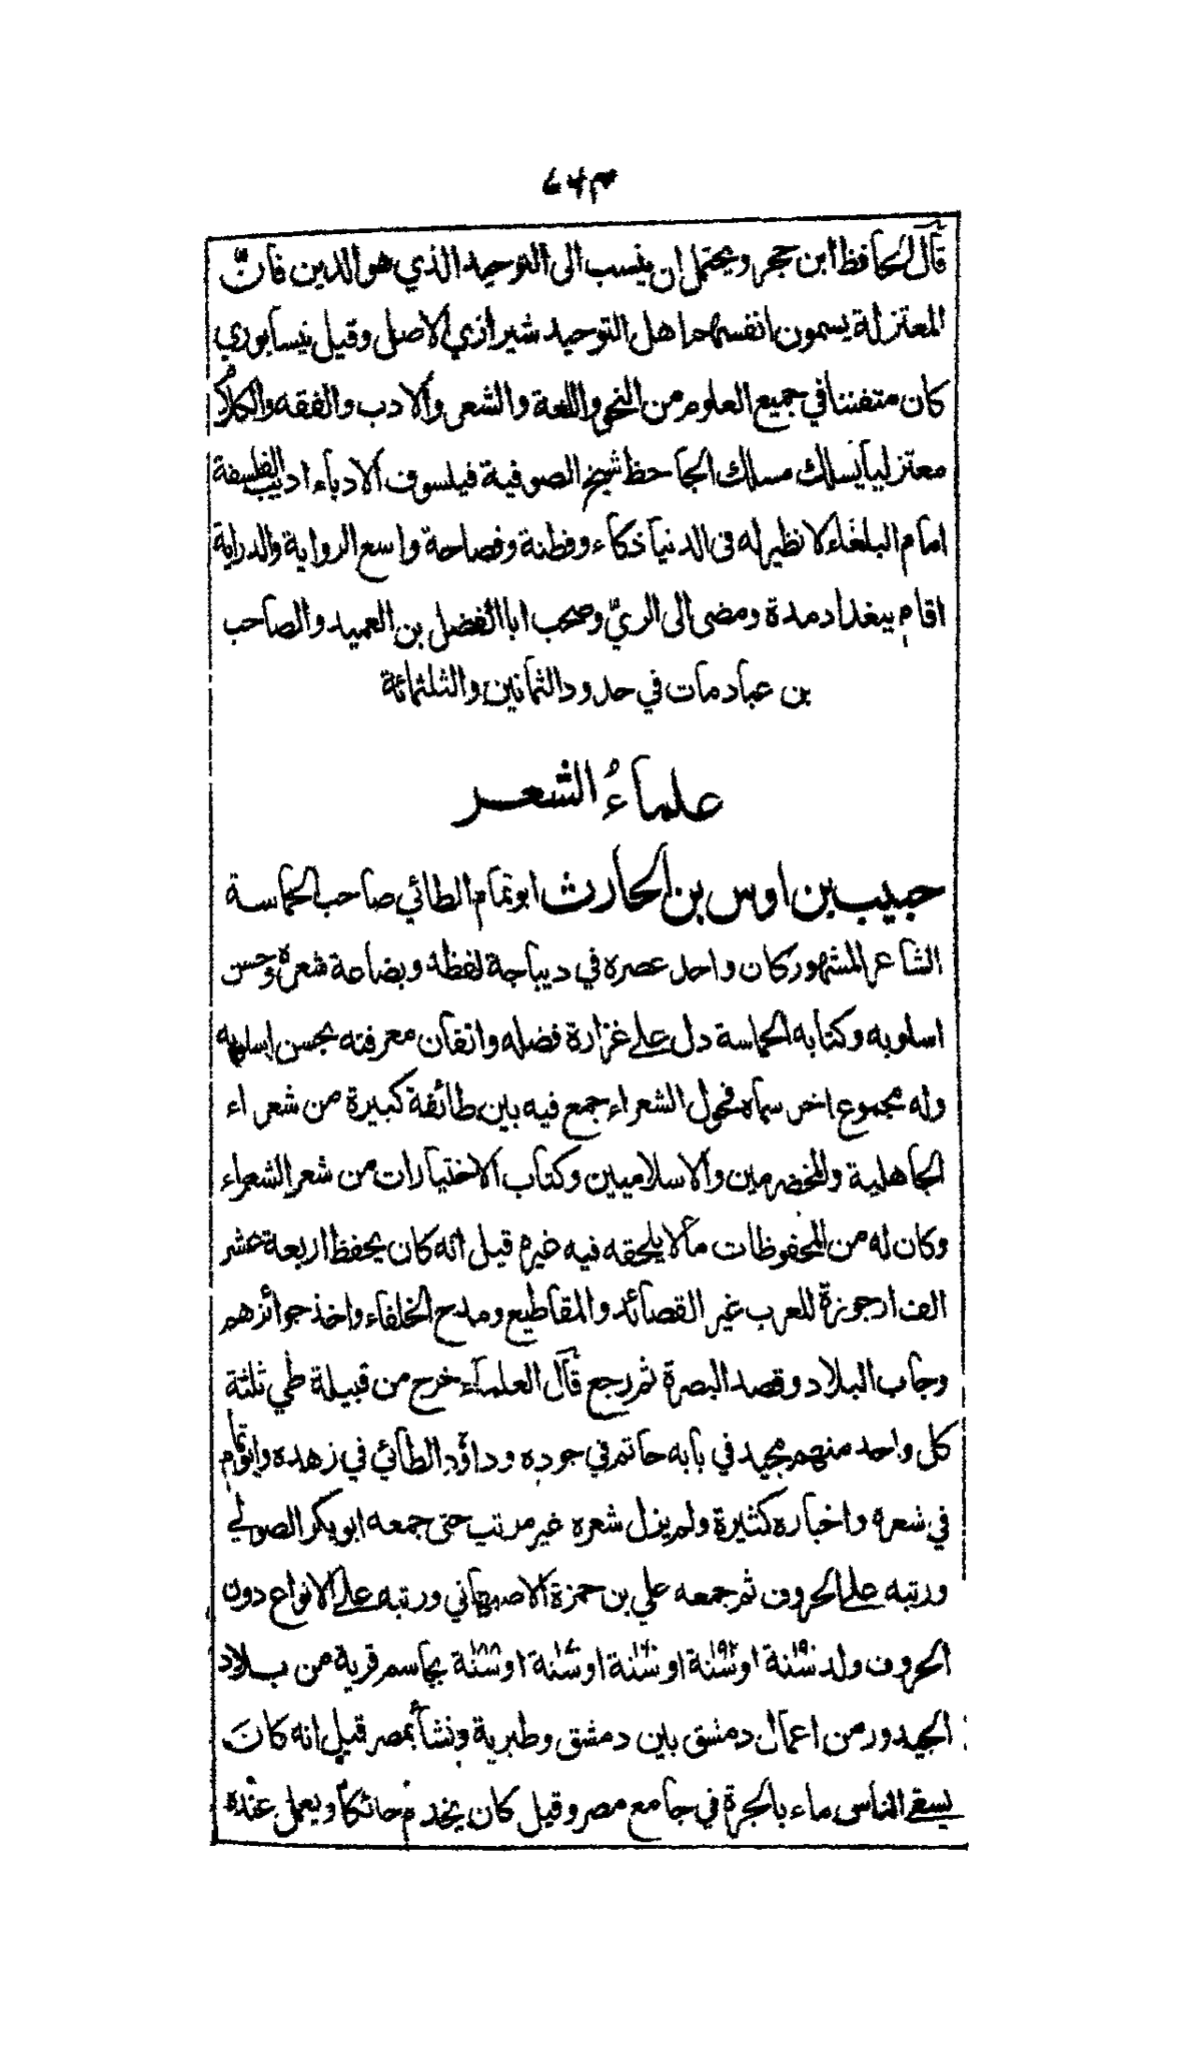 ٧٦٣
قال الحافظ ابن حجر ويحتمل ان ينسب الى التوحيد الذي هو الدين فانّ
المعتزلة يسمون انفسهم اهل التوحيد شيرازي الاصل وقيل نيسابوري
كان متفننا في جميع العلوم من النحو واللغة والشعر والادب والفقه والكلام
معتزليا يسلك مسلك الجاحظ شيخ الصوفية فيلسوف الادباء اديب الفلسفة
امام البلغاء لا نظير له في الدنيا ذكاء وفطنة وفصاحة واسع الرواية والدراية
اقام ببغداد مدة ومضى الى الريّ وصحب ابا الفضل بن العميد والصاحب
بن عباد مات في حدود الثمانين والثلثمائة
علماءُ الشعر
حبيب بن اوس بن الحارث ابو تمام الطائي صاحب الحماسة
الشاعر المشهور كان واحد عصره في ديباجة لفظه وبضاعة شعره وحسن
اسلوبه وكتابه الحماسة دل على غزارة فضله واتقان معرفته بحسن اسلوبه
وله مجموع اخر سماه فحول الشعراء جمع فيه بين طائفة كبيرة من شعراء
الجاهلية والمخضرمين والاسلاميين وكتاب الاختيارات من شعر الشعراء
وكان له من المحفوظات مالا يلحقه فيه غيره قيل انه كان يحفظ اربعة عشر
الف ارجوزة للعرب غير القصائد والمقاطيع ومدح الخلفاء واخذ جوائزهم
وجاب البلاد وقصد البصرة ثم رجع قال العلماء خرج من قبيلة طي ثلثة
كل واحد منهم مجيد في بابه حاتم في جوده وداؤد الطائي في زهده وابو تمام
في شعره واخباره كثيرة ولم يزل شعره غير مرتب حتى جمعه ابو بكر الصولي
ورتبه على الحروف ثم جمعه علي بن حمزة الاصبهاني ورتبه على الانواع دون
الحروف ولد سنة ١٩٠ او سنة ١٩٢ او سنة او سنة او سنة ١٨٨ بجاسم قرية من بلاد
الجيدور من اعمال دمشق بين دمشق وطبرية ونشأ بمصر قيل انه كانَ
يسقي الناس ماء بالجرة في جامع مصر وقيل كان يخدم حائكا ويعمل عنده